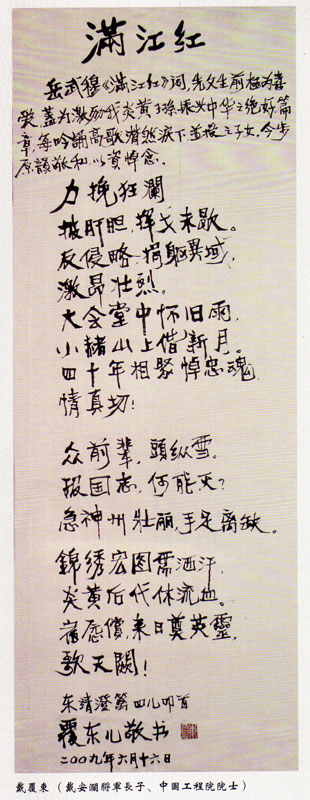 满江红
岳武穆《满江红》词,先父生前极为喜
爱,盖为激励我炎黄子孙振兴中华之绝好篇
章,每吟诵高歌潸然泪下并授之子女,今步
原韵敬和,以资悼念。
力挽狂瀾
披肝胆,挥戈未歇。
反侵略捐躯異域,
激昂壮烈。
大会堂中怀旧雨,
小赭山上借新月。
四十年相聚悼忠魂,
情真切!
众前輩,頭纵雪。
报国志,何能灭?
急神州壮丽,手足离缺。
錦绣宏图需洒汗,
炎黄后代休流血。
宿愿償,来日奠英靈,
歌天闕!
东靖澄篱四儿叩首
覆东儿敬书
二〇〇九年六月十六日
戴覆東(戴安瀾將軍長子、中國工程院院士)